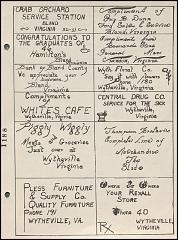 CRAB ORCHARD
SERVICE STATION
BLAND
VIRGINIA
CONGRATULATIONS TO
THE GRADUATES OF
Bland
Hamilton's
Bland, Virginia
Bland County
We appreciate your
Bland, Virginia
Compliments
of
WHITE'S CAFE
Wytheville, Virginia
Piggly Wiggly
Meats & Groceries
Just over in
Wytheville
Virginia
PLESS FURNITURE
& SUPPLY CO.
QUALITY FURNITURE
PHONE 191
WYTHEVILLE, VA.
Compliment of
Dunn
Ford Sales & Service
Bland, Virginia
Compliments from
Virginia
Wyth Floral Co.
Say it with flowers
Phone 180
Wytheville, Virginia
CENTRAL DRUG CO.
SERVICE FOR THE SICK
Wytheville, Virginia
Thompson Brothers
Complete Line of
Merchandise
The
Blade
Owens & Owens
YOUR REXALL
STORE
PHONE 40
WYTHEVILLE,
VIRGINIA
Rx
1188